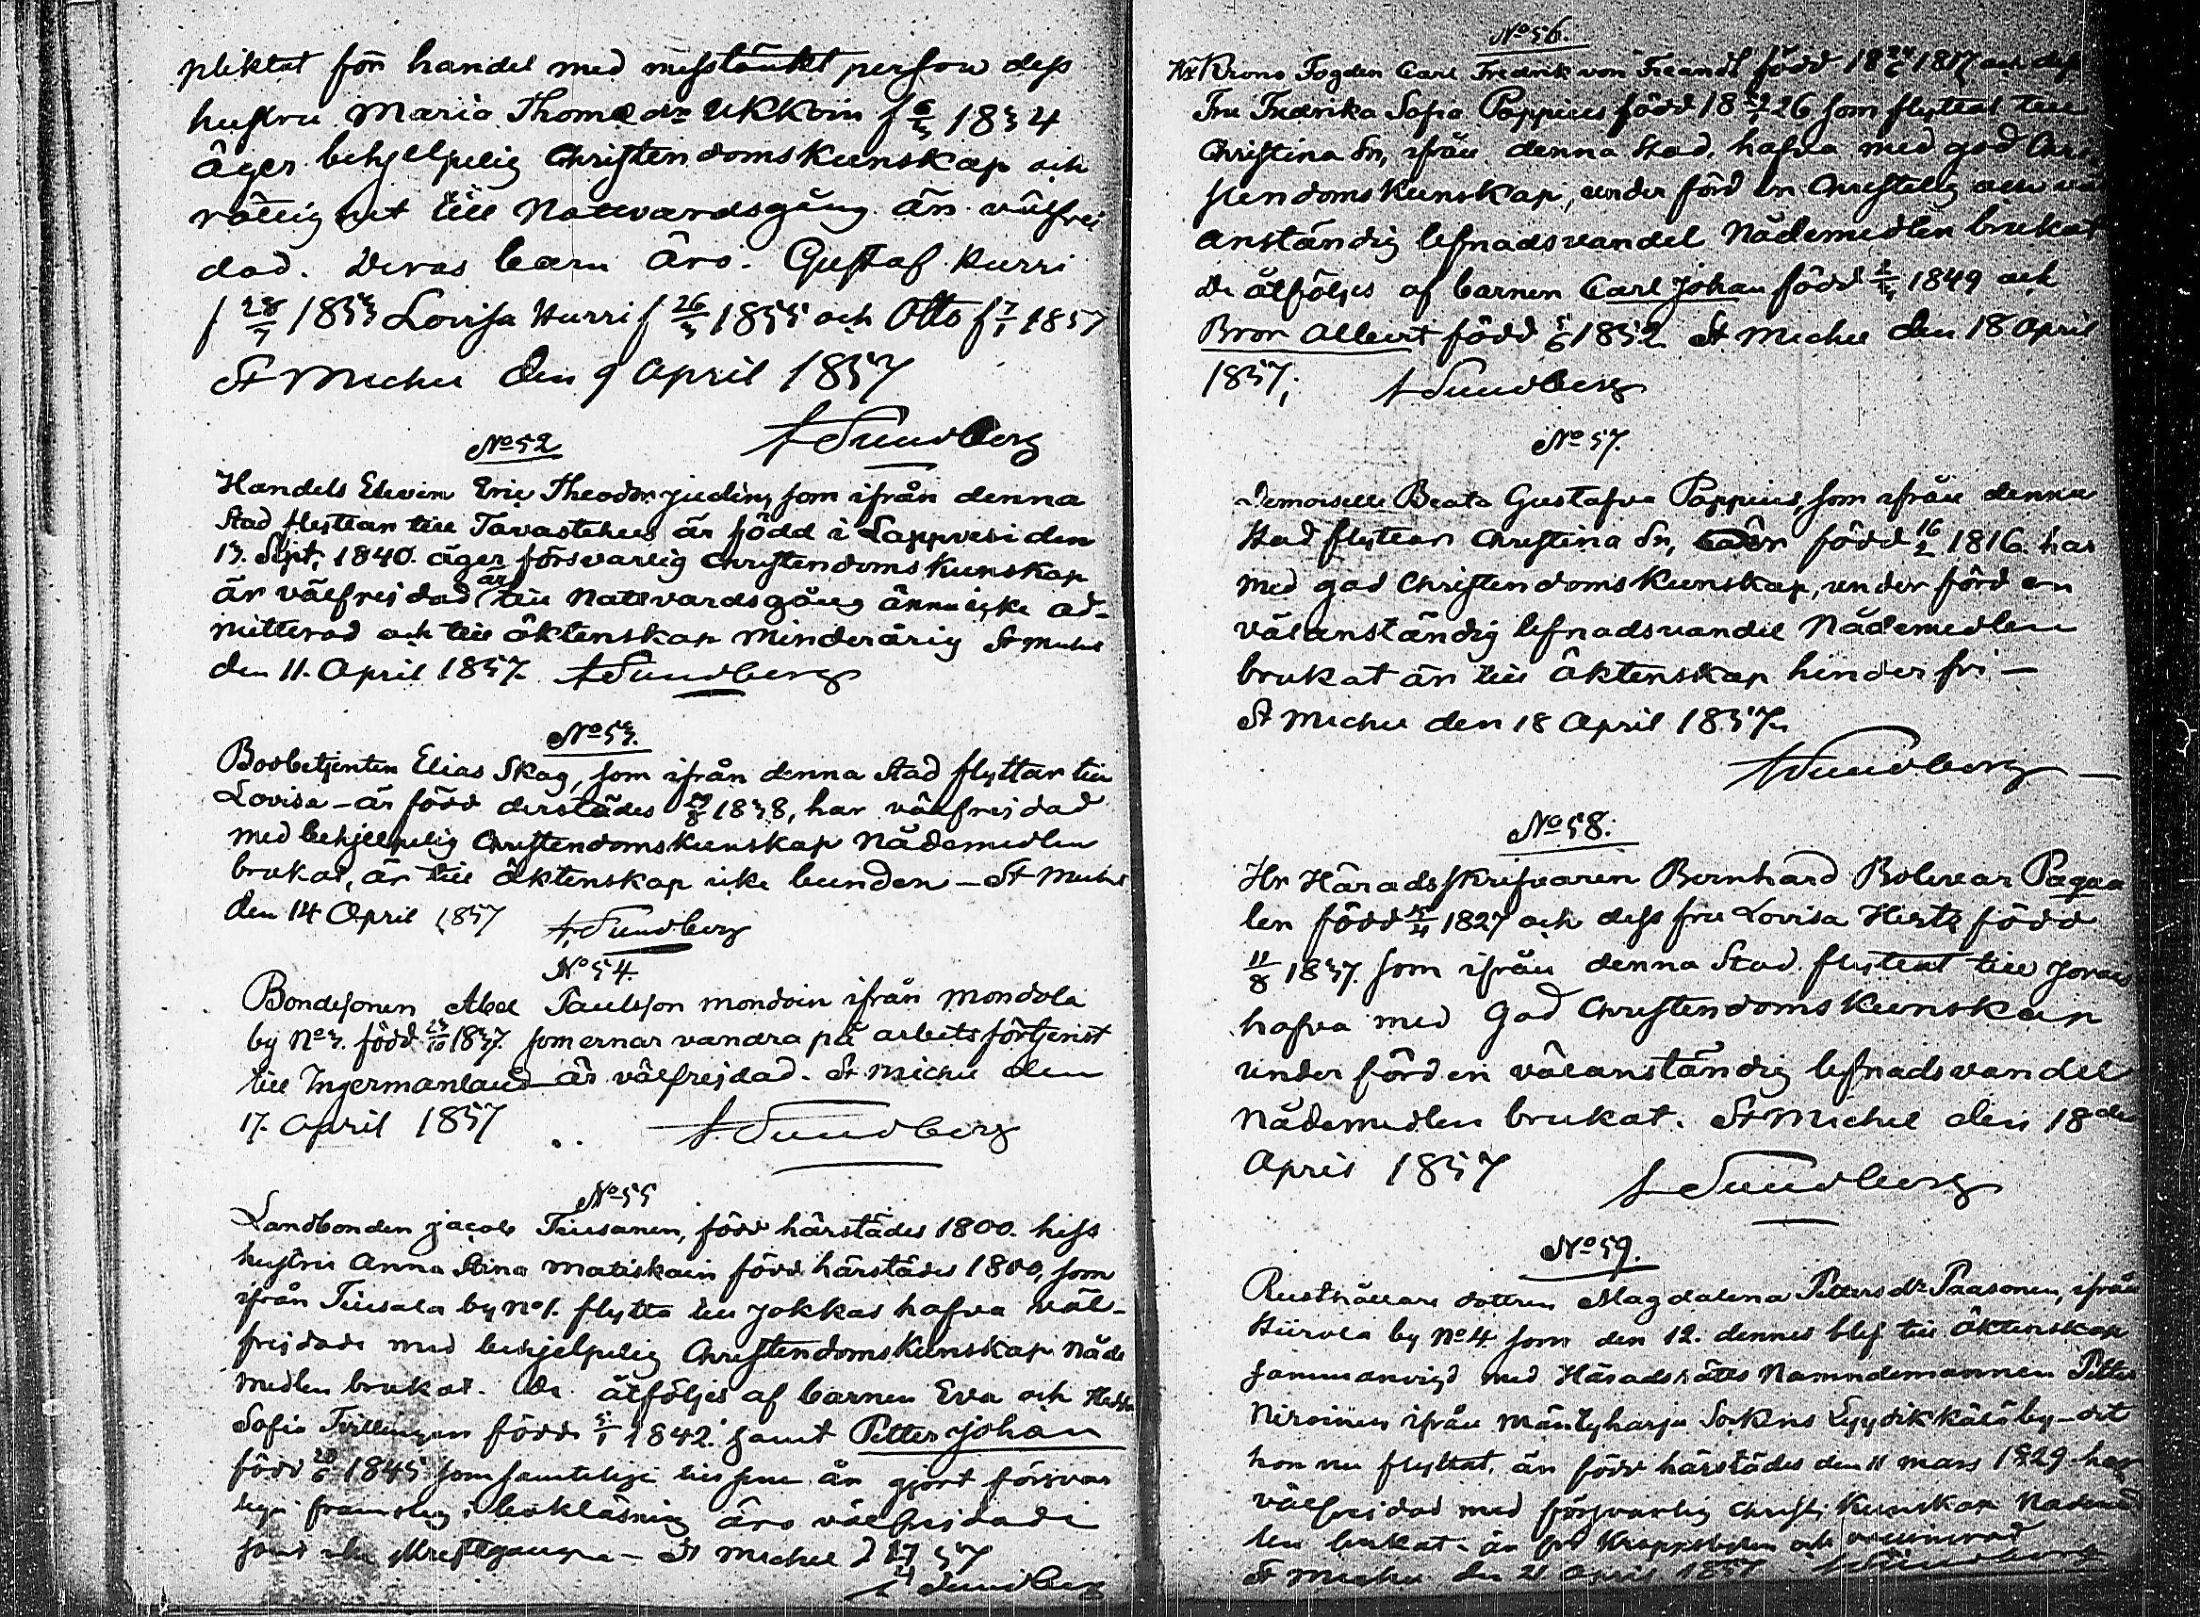 pliktat för handel med misstänkt person dess
hustru Maria Thomædr Ukkoin f 6/3 1834
äger behjelpelig Christendomskunskap och
rättighet till Nattvardsgång är välfrej
dad. Deras barn äro. Gustaf Hurri
f 28/7 1853 Lovisa Hurri f 26/3 1855 och Otto f 7/1 1857
St Michel den 9 April 1857
A Sundberg
No 52
Handels Eleven Eric Theodor Juding som ifrån denna
Stad flyttar till Tavastehus är född i Lappvesi den
13. Sept. 1840. äger försvarlig Christendoms Kunskap
är välfrejdad är till Nattvardsgång ännu icke ad-
mitterad och till äktenskap minderårig St Michel
den 11. April 1857. A Sundberg
No 53.
Bodbetjenten Elias Skog, som ifrån denna Stad flyttar till
Lovisa – är född derstädes /8 1838, har välfrejdad
med behjelpelig Christendoms Kunskap Nådemedlen
brukat, är till äktenskap icke bunden – St Michel
den 14 April 1857 A. Sundberg
No 54.
Bondesonen Abel Paulsson Mondoin ifrån Mondola
by No 3. född 23/10 1837. som ernar vandra på arbetsförtjenst
till Ingermanland är välfrejdad. St Michel den
17. April 1857 A. Sundberg
No 55
Landbonden Jacob Tiusanen, född härstädes 1800. hess
hustru Anna Stina Matiskain född härstädes 1800, som
ifrån Tiusala by No 1. flytta till Jokkas hafva väl-
frejdade med behjelpelig Christendoms Kunskap Nåde
medlen brukat. De åtföljes af barnen Eva och Hedda
Sofia Tvillingar födde 5/1 1842. samt Petter Johan
född 20/6 1845 som samtelige till sine år gjort försvar
lige framsteg i bokläsning äro välfrejdade
samt St Michel d 17/4 57
A Sundberg
No 56.
Hr Krono Fogden Carl Fredrik von Freandt född 18 24/6 1817 och dess
Fru Fredrika Sofia Poppius född 18 /1 26 som flyttat till
Christina Sn, ifrån denna Stad, hafva med god Chri
stendoms Kunskap, under förd en Christelig och väl
anständig lefnadsvandel Nådemedlen brukat
De åtföljes af barnen Carl Johan född 2/3 1849 och
Bror Albert född 5/6 1852 St Michel den 18 April
1857; A Sundberg
No 57.
Demoiselle Beata Gustafva Poppius, som ifrån denna
Stad flyttar Christina Sn, är född 16/2 1816. har
med god Christendoms Kunskap, under förd en
välanständig lefnadsvandel Nådemedlen
brukat är till Äktenskap hinderfri –
St Michel den 18 April 1857.
A Sundberg –
No 58.
Hr Häradsskrifvaren Bernhard Bolivar Pagaa
len född 15/4 1827 och dess fru Lovisa Hertz född
11/8 1837. som ifrån denna Stad flyttat till Jorois
hafva med God Christendoms Kunskap
under förd en välanständig lefnadsvandel
Nådemedlen brukat. St Michel den 18 den
April 1857 A Sundberg
No 59.
Rusthållare dottren Magdalena Pettersdr Paasonen, ifrån
Hiirola by No 4 som den 12. dennes blef till Äktenskap
sammanvigd med Häradsrätts Nämndemannen Petter
Niroinen ifrån Mäntyharju Sockns Lyydikkälä by – dit
hon nu flyttat, är född härstädes den 11 Mars 1829. har
välfrejdad med försvarlig Christ: Kunskap Nådemed
len brukat – är för Koppsoten och vaccinerad
St Michel den 21 April 1857 A Sundberg